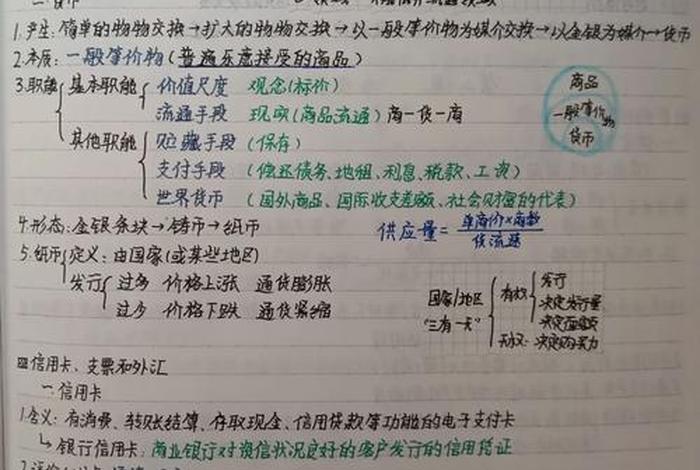 一货币
1.产生:简单的物物交换→扩大的物物交换→以一般等价物为媒介交换→以金银为媒介→货币
2.本质:一般等价物(普遍乐意接受的商品)
3.职能 基本职能 价值尺度 观念(标价)
流通手段 现实(商品流通)商—货—商
其他职能 贮藏手段(保存)
支付手段(偿还债务、地租、利息、税款、工资)
世界货币(国外商品、国际收支差额、社会财富的代表)
商品
一般等价物
货币
4.形态:金银条块→铸币→纸币
供应量=单商价×商数/货流速
5.纸币 定义:由国家(或某些地区)
发行 过多 价格上涨 通货膨胀
过少 价格下跌 通货紧缩
国家/地区
"三有一无"
有权 发行
决定发行量
决定面额
无权:决定购买力
四信用卡、支票和外汇
一.信用卡
1.含义:有消费、转账结算、存取现金、信用贷款等功能的电子支付卡
↳银行信用卡:商业银行对资信状况良好的客户发行的信用凭证